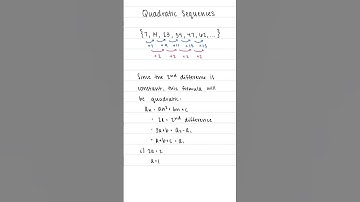 Quadratic Sequences
{7, 14, 23, 34, 47, 62, ...}
+7 +9 +11 +13 +15
+2 +2 +2 +2
Since the 2nd difference is
constant, this formula will
be quadratic.
an = an² + bn + c
• 2a = 2nd difference
• 3a + b = a2 - a1
• a + b + c = a1
c) 2a = 2
a = 1